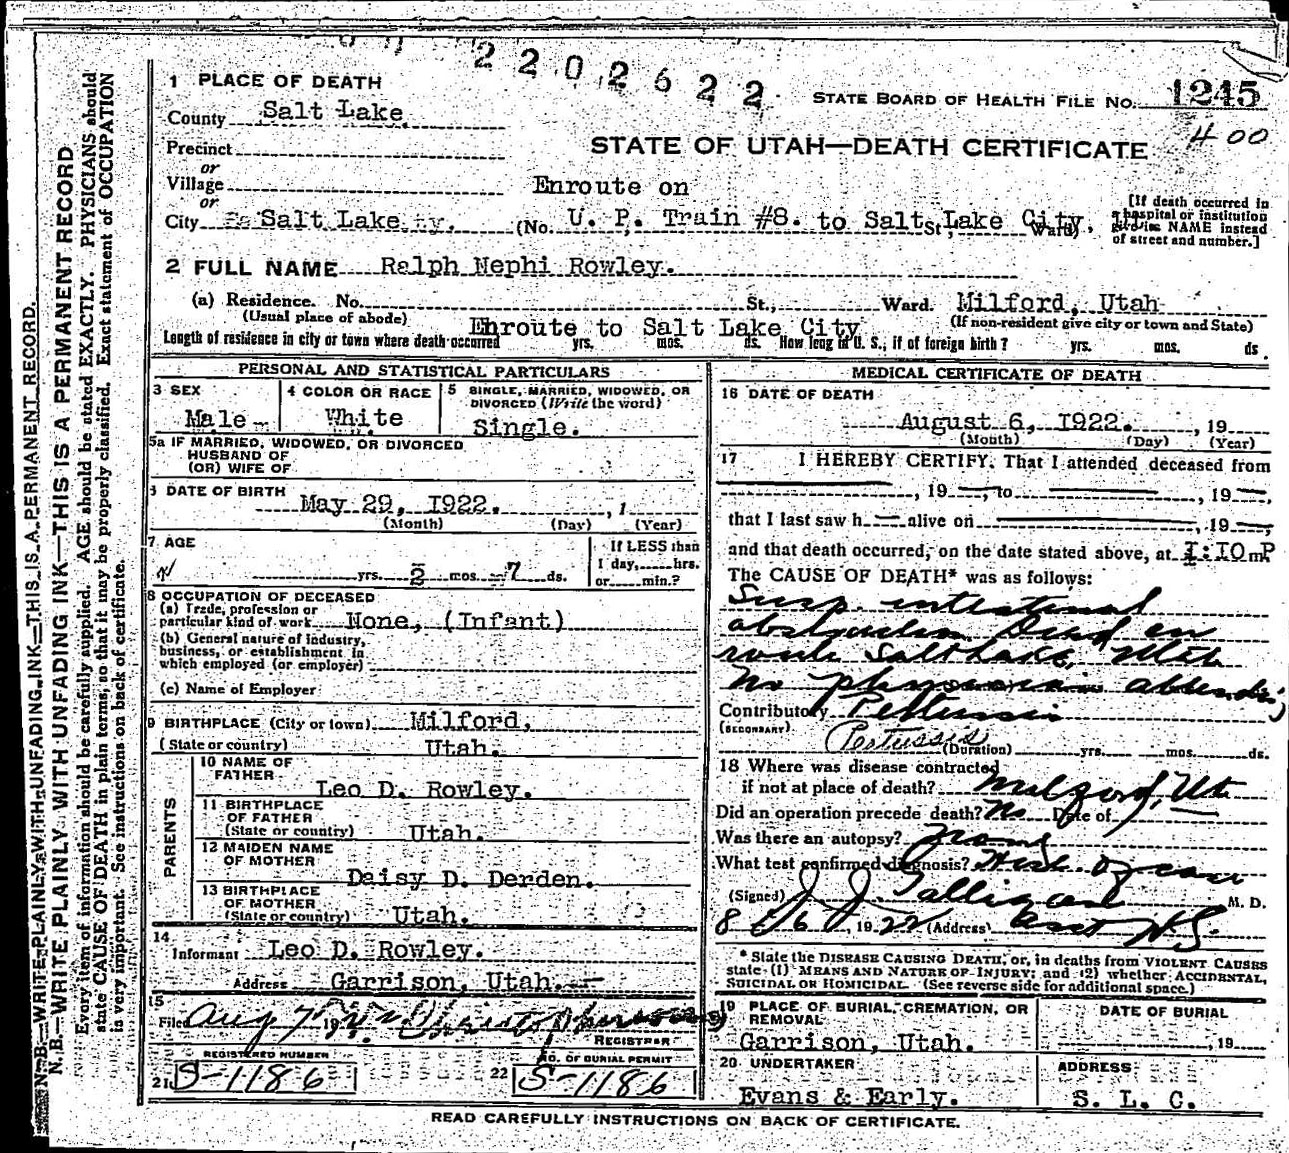 2202622
1 PLACE OF DEATH
STATE BOARD OF HEALTH FILE NO. 1245
County Salt Lake
400
STATE OF UTAH—DEATH CERTIFICATE
Precinct
or
Village
Enroute on
or
City Salt Lake (No. U. P. Train #8. to Salt Lake City, St.; Ward)
[If death occurred in a hospital or institution give its NAME instead of street and number.]
2 FULL NAME Ralph Nephi Rowley.
(a) Residence. No. St., Ward. Milford, Utah
(Usual place of abode) (If non-resident give city or town and State)
Enroute to Salt Lake City
Length of residence in city or town where death occurred yrs. mos. ds. How long in U. S., if of foreign birth? yrs. mos. ds.
PERSONAL AND STATISTICAL PARTICULARS
3 SEX
Male
4 COLOR OR RACE
White
5 SINGLE, MARRIED, WIDOWED, OR DIVORCED (Write the word)
Single.
5a IF MARRIED, WIDOWED, OR DIVORCED
HUSBAND OF
(OR) WIFE OF
6 DATE OF BIRTH
May 29, 1922. , 1
(Month) (Day) (Year)
7 AGE
yrs. 2 mos. 7 ds.
If LESS than
1 day, hrs.
or min.?
8 OCCUPATION OF DECEASED
(a) Trade, profession or
particular kind of work None, (Infant)
(b) General nature of industry,
business, or establishment in
which employed (or employer)
(c) Name of Employer
9 BIRTHPLACE (City or town) Milford,
(State or country) Utah.
PARENTS
10 NAME OF
FATHER
Leo D. Rowley.
11 BIRTHPLACE
OF FATHER
(State or country) Utah.
12 MAIDEN NAME
OF MOTHER
Daisy D. Derden.
13 BIRTHPLACE
OF MOTHER
(State or country) Utah.
14
Informant Leo D. Rowley.
Address Garrison, Utah.
15
Filed Aug 7 19 Wm Christophersons
REGISTRAR
REGISTERED NUMBER
21 S-1186
NO. OF BURIAL PERMIT
22 S-1186
MEDICAL CERTIFICATE OF DEATH
16 DATE OF DEATH
August 6, 1922. , 19
(Month) (Day) (Year)
17 I HEREBY CERTIFY, That I attended deceased from
, 19 , to , 19 ,
that I last saw h alive on , 19 ,
and that death occurred, on the date stated above, at 1:10 m P
The CAUSE OF DEATH* was as follows:
Susp. intestinal
obstruction Died en
route Salt Lake, Utah
No physician attending
Contributory Pertussis
(SECONDARY)
(Pertussis) (Duration) yrs. mos. ds.
18 Where was disease contracted
if not at place of death? Milford, Ut
Did an operation precede death? No Date of
Was there an autopsy? None
What test confirmed diagnosis? Hist of case
(Signed) J. J. Galligan M. D.
8/6, 1922 (Address) Asst H.S.
* State the DISEASE CAUSING DEATH, or, in deaths from VIOLENT CAUSES
state (1) MEANS AND NATURE OF INJURY; and (2) whether ACCIDENTAL,
SUICIDAL OR HOMICIDAL. (See reverse side for additional space.)
19 PLACE OF BURIAL, CREMATION, OR
REMOVAL
Garrison, Utah.
DATE OF BURIAL
, 19
20 UNDERTAKER
Evans & Early.
ADDRESS
S. L. C.
READ CAREFULLY INSTRUCTIONS ON BACK OF CERTIFICATE.
N. B.—WRITE PLAINLY WITH UNFADING INK—THIS IS A PERMANENT RECORD.
N. B.—WRITE PLAINLY WITH UNFADING INK—THIS IS A PERMANENT RECORD
Every item of information should be carefully supplied. AGE should be stated EXACTLY. PHYSICIANS should
state CAUSE OF DEATH in plain terms, so that it may be properly classified. Exact statement of OCCUPATION
is very important. See instructions on back of certificate.